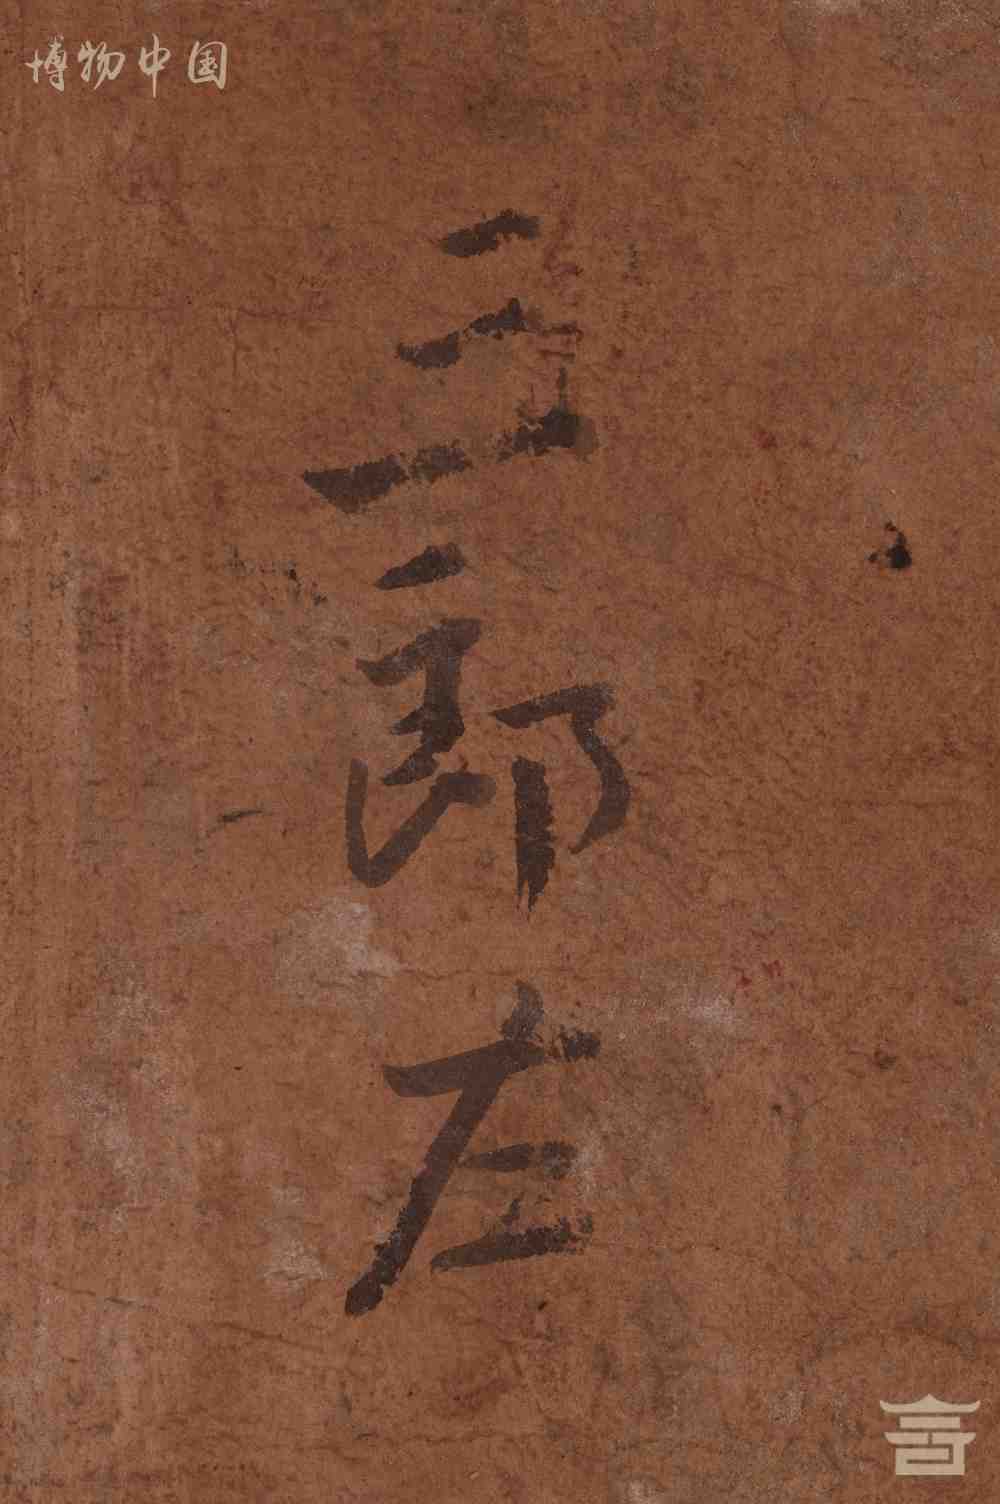 博物中国
三郎左